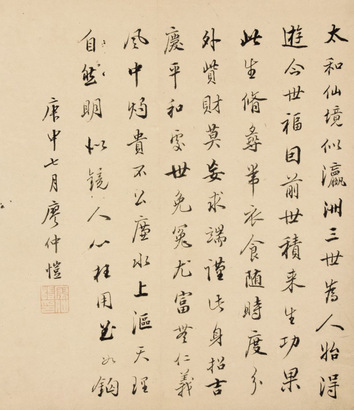 太和仙境似瀛洲三世為人始得
遊今世福因前世積來生功果
此生脩尋常衣食隨時度分
外貲財莫妄求端謹身招吉
慶平和處世免冤尤富無仁義
風中燭貴不公廉水上漚天理
自然明似鏡人心枉用曲如鉤
庚申七月廖仲愷